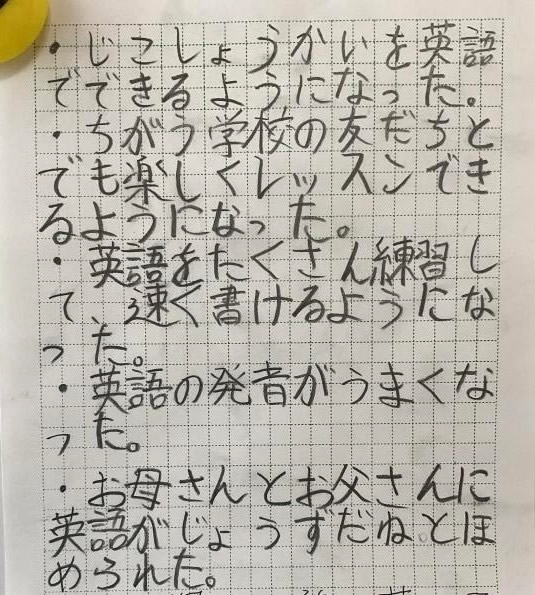 ・じこしょうかいを英語
でできるようになった。
・ちがう学校の友だちと
でも楽しくレッスンでき
るようになった。
・英語をたくさん練習し
て、速く書けるようにな
った。
・英語の発音がうまくな
った。
・お母さんとお父さんに
英語がじょうずだねとほ
められた。